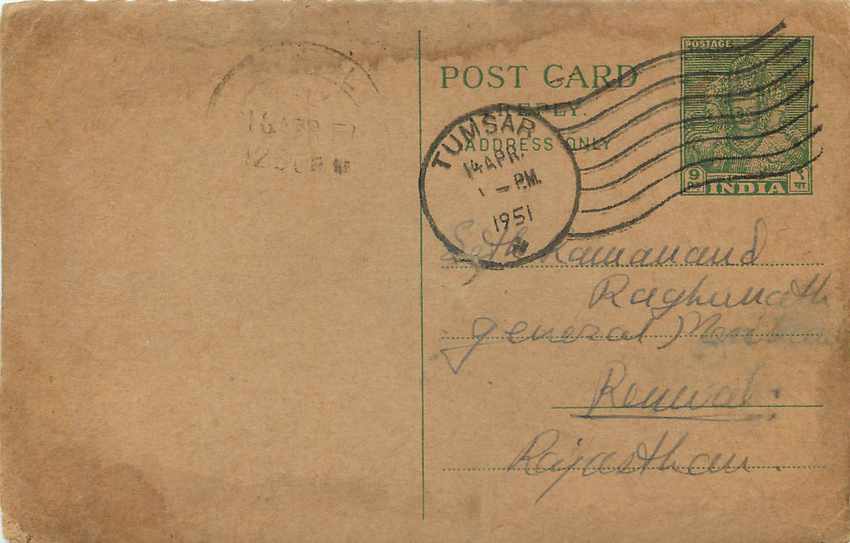 POSTAGE
POST CARD
REPLY.
ADDRESS ONLY
9 Ps
INDIA
९ पा
TUMSAR
14 APR.
1 - P.M.
1951
16 APR 51
Seth Ramanand
Raghunath
General Mer
Renwal.
Rajasthan.